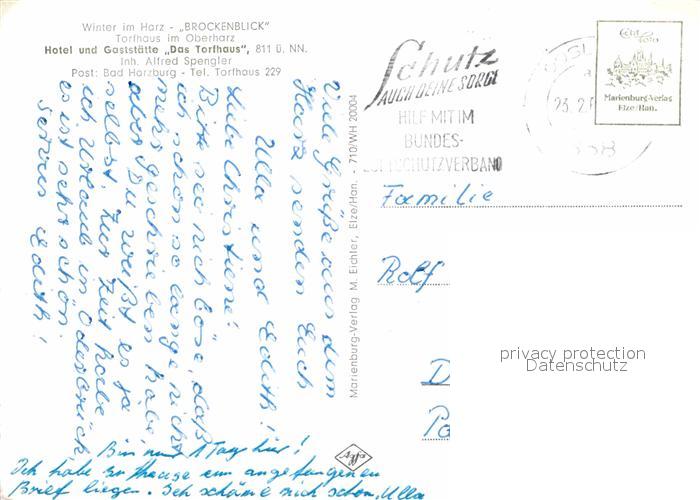 Winter im Harz - „BROCKENBLICK"
Torfhaus im Oberharz
Hotel und Gaststätte „Das Torfhaus", 811 ü. NN.
Inh. Alfred Spengler
Post: Bad Harzburg - Tel. Torfhaus 229
Viele Grüße aus dem
Harz senden Euch
Ulla und Edith!
Liebe Christiene!
Bitte sei nich böse, daß
ich schon so lange nicht
mehr geschrieben habe,
aber Du weißt es ja
selbst. Zur Zeit habe
ich Urlaub in Oderbrück
es ist sehr schön.
Servus Edith!
Bin nur 1 Tag hier!
Ich habe zu Hause ein angefangenen
Brief liegen. Ich schäme mich schon, Ulla
Marienburg-Verlag M. Eichler, Elze/Han. - 710/WH 20004
Agfa
Schutz
AUCH DEINE SORGE
HILF MIT IM
BUNDES-
LUFTSCHUTZVERBAND
23.2.
338
Echt Foto
Marienburg-Verlag
Elze/Han.
Familie
Rolf
D
Pa
privacy protection
Datenschutz